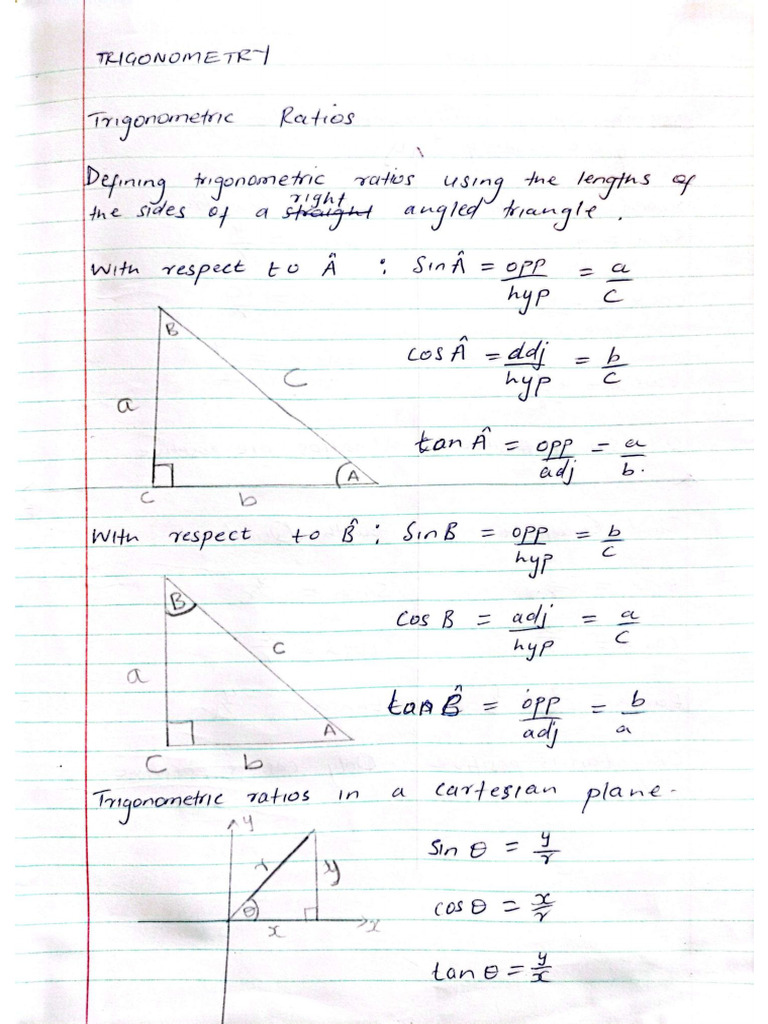 TRIGONOMETRY
Trigonometric Ratios
Defining trigonometric ratios using the lengths of
the sides of a straight right angled triangle.
With respect to Â : Sin Â = opp/hyp = a/c
cos Â = adj/hyp = b/c
tan Â = opp/adj = a/b.
B
C
a
A
C
b
With respect to B̂ : Sin B = opp/hyp = b/c
cos B = adj/hyp = a/c
tan B̂ = opp/adj = b/a
B
c
a
A
C
b
Trigonometric ratios in a cartesian plane.
y
r
y
θ
x
x
sin θ = y/r
cos θ = x/r
tan θ = y/x